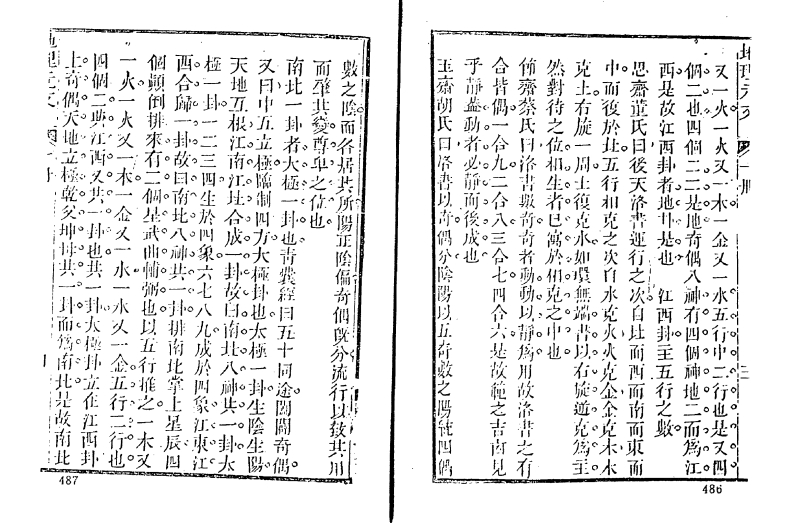 又一火一火又一木一金又一水五行中二行也是又四
個二也四個二二是地奇偶八神有四個神地二而爲江
西是故江西卦者地卄是也　江西卦主五行之數
思齋董氏曰後天洛書運行之次自北而西而南而東而
中而復於北五行相克之次自水克火火克金金克木木
克土右旋一周土復克水如環無端書以右旋逆克爲主
然對待之位相生者已寓於相克之中也
節齋蔡氏曰洛書數奇奇者動動以靜爲用故洛書之有
合皆偶一合九二合八三合七四合六是故種之吉凶見
乎靜蓋動者必靜而後成也
玉齋胡氏曰洛書以奇偶分陰陽以五奇數之陽統四偶
486
數之陰而各居其所陽正陰偏奇偶既分流行以致其用
而肇其變尊卑之位也
南北一卦者太極一卦也靑囊經曰五十同途闔闢奇偶
又曰中五立極臨制四方太極卦也太極一卦生陰生陽
天地互根江南江北合成一卦故曰南北八神共一卦太
極一卦一二三四生於四象六七八九成於四象江東江
西合歸一卦故曰南北八神共一卦排南北掌上星辰四
個顛倒排來有二個星武曲輔弼也以五行推之一木又
一火一火又一木一金又一水一水又一金五行二行也
四個二與江西又共一卦也共一卦太極卦立在江西卦
上奇偶天地立極乾父坤母共一卦而爲南北是故南北
487